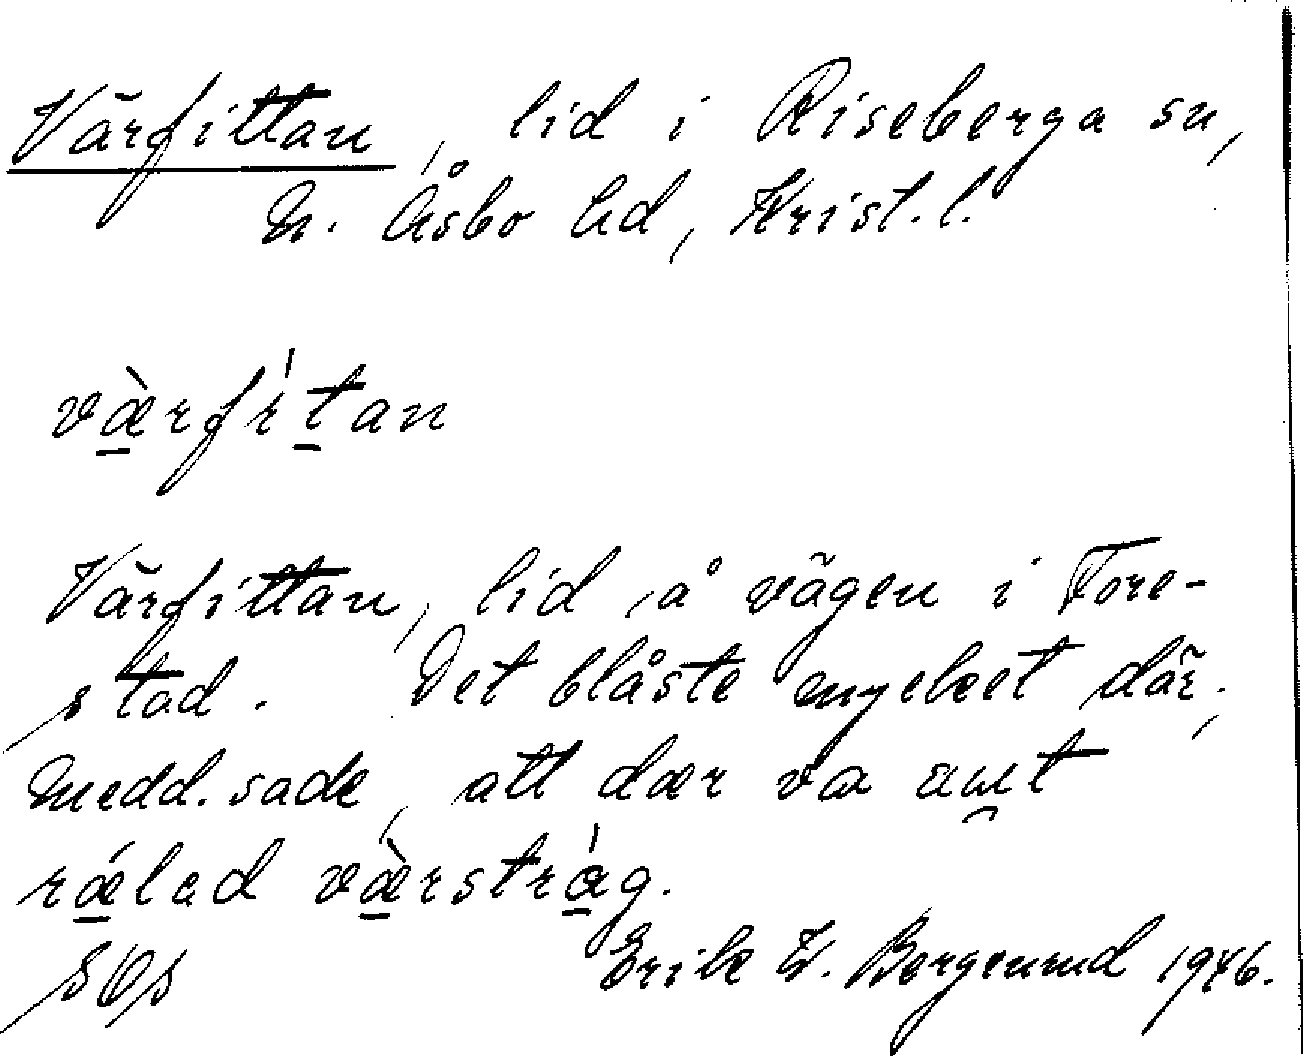 Värfittan, lid i Riseberga sn,
N. Åsbo hd, Krist. l.
væ̀rfítan
Värfittan, lid å vägen i Fore-
stad. Det blåste mycket där,
Medd. sade, att dær va
rǽlad væ̀rstrág.
Erik W. Bergenrud 1946.